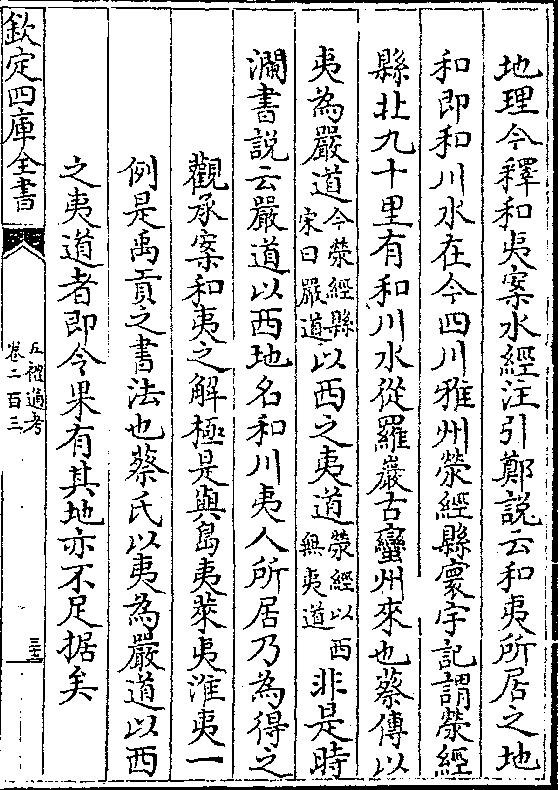 地理今釋和夷案水經注引鄭說云和夷所居之地
和即和川水在今四川雅州滎經縣寰宇記謂滎經
縣北九十里有和川水從羅巖古蠻州來也蔡傳以
夷為嚴道今滎經縣宋曰嚴道以西之夷道滎經以西無夷道非是時
瀾書說云嚴道以西地名和川夷人所居乃為得之
觀承案和夷之解極是與島夷萊夷淮夷一
例是禹貢之書法也蔡氏以夷為嚴道以西
之夷道者即令果有其地亦不足据矣
欽定四庫全書
五禮通考
卷二百三
三十三